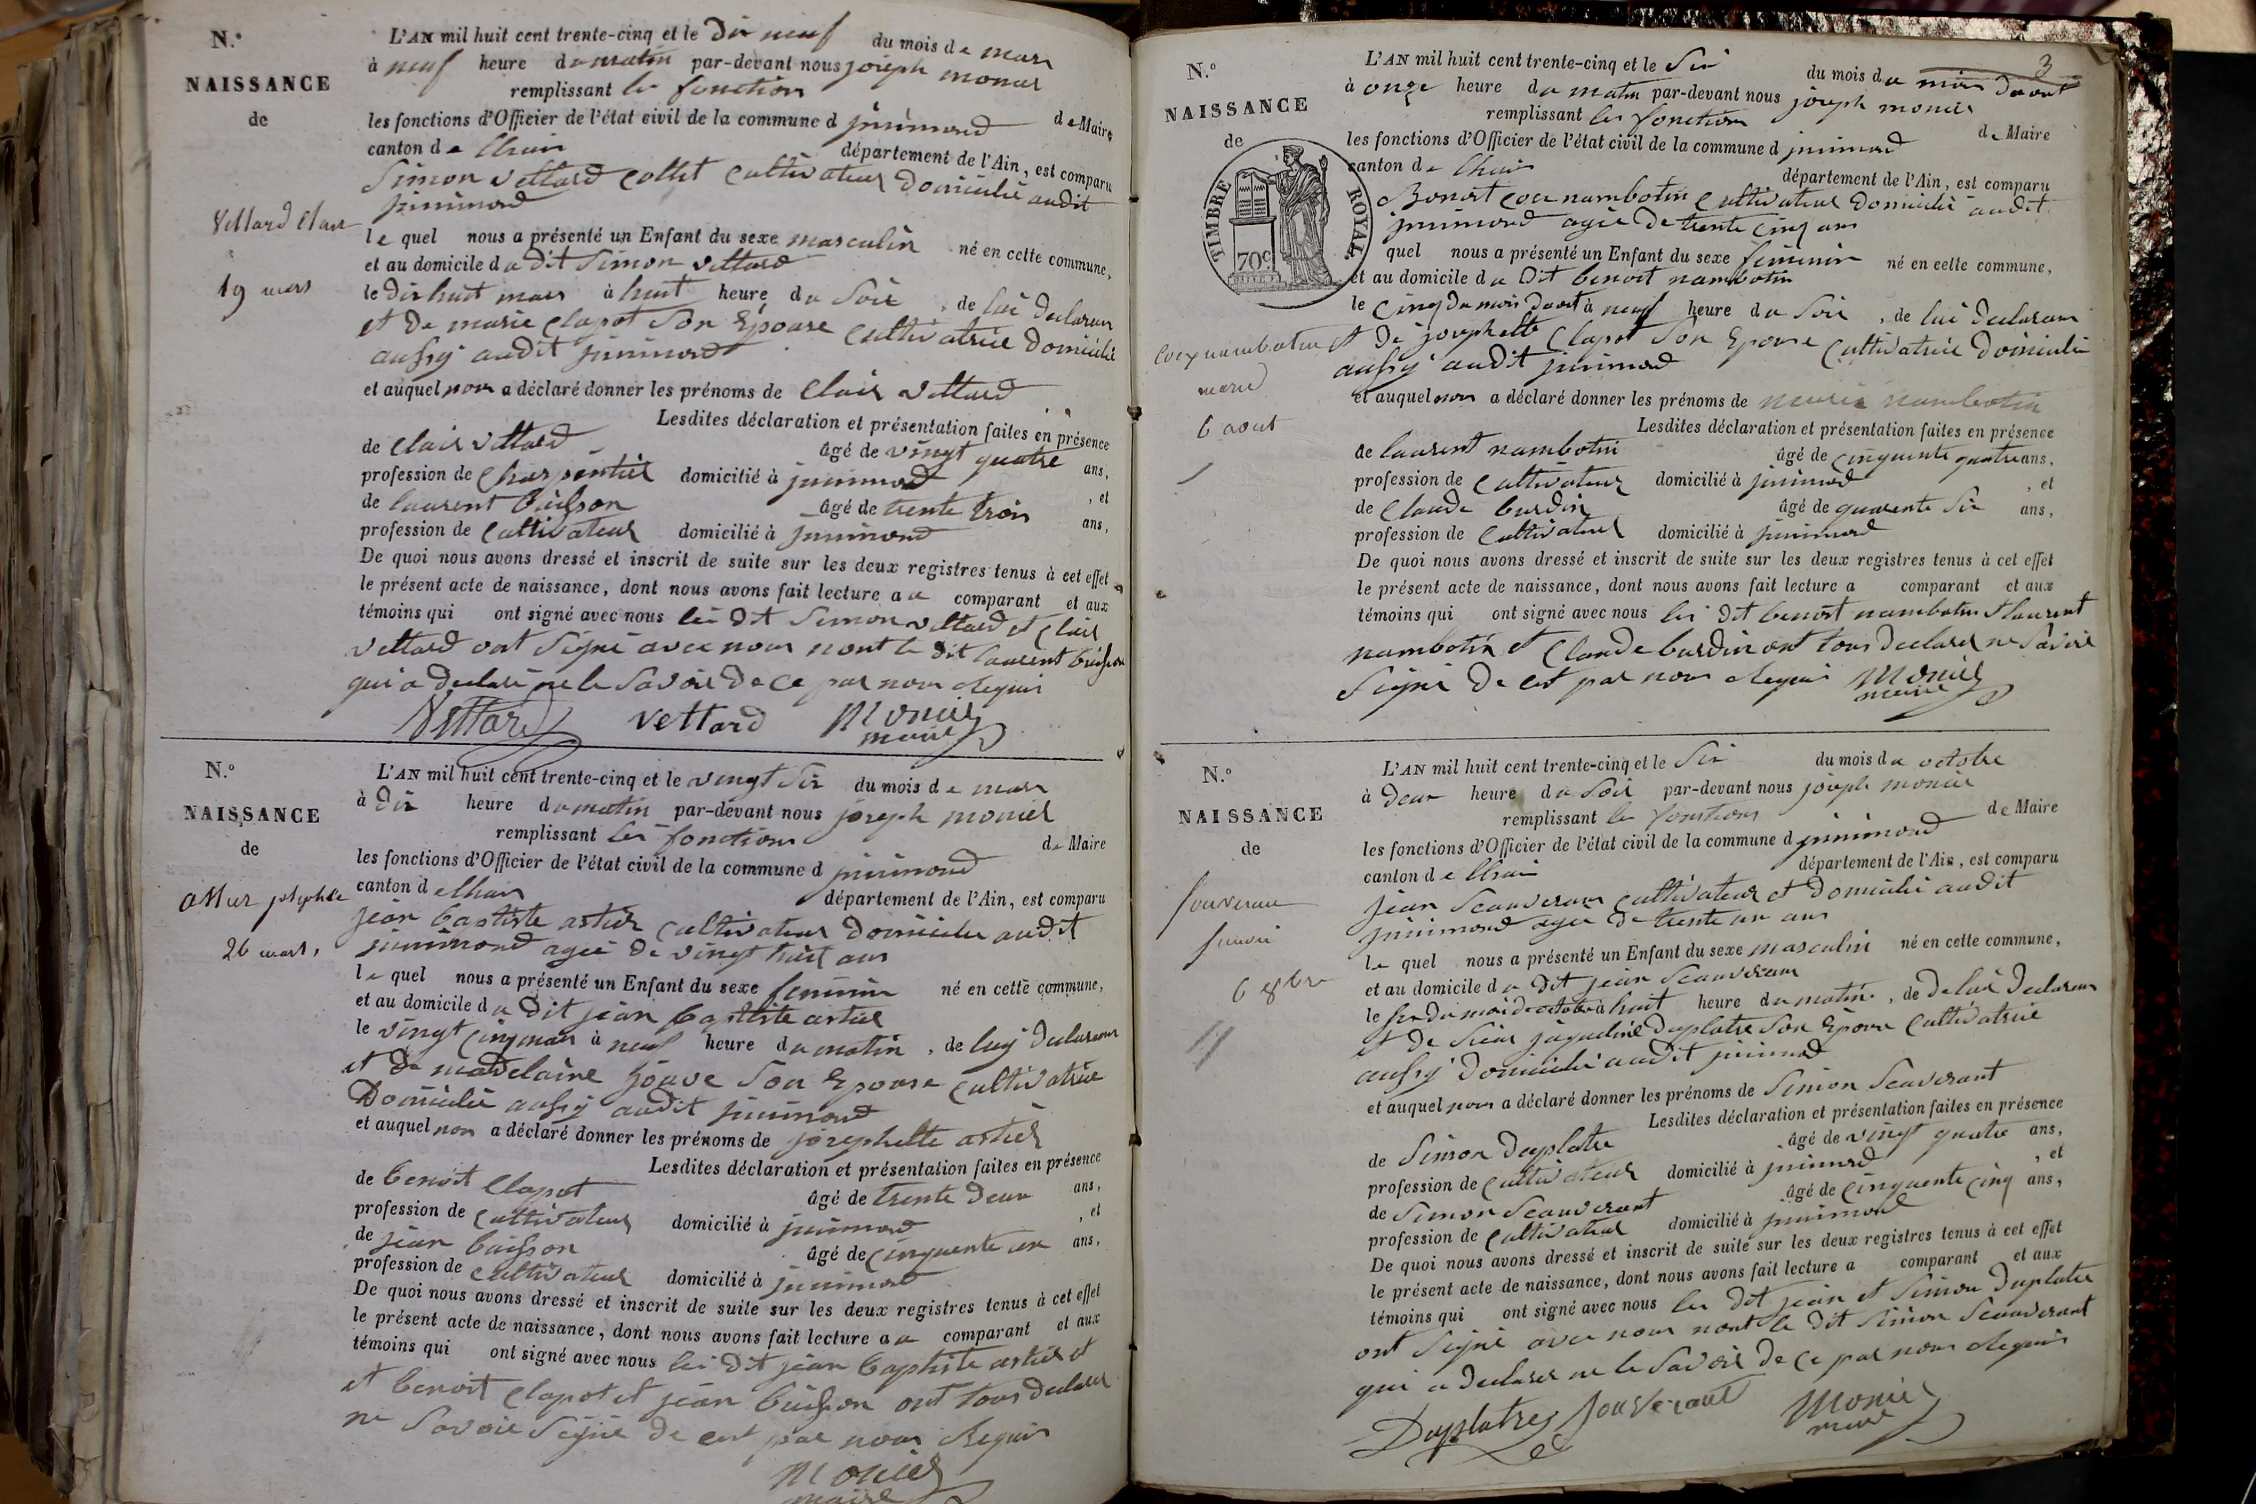 N.º
NAISSANCE
de
Vettard Clair
19 mars
L'AN mil huit cent trente-cinq et le dix neuf du mois de mars
à neuf heure du matin par-devant nous joseph monier
remplissant les fonction de Maire
les fonctions d'Officier de l'état civil de la commune d jnnimond
canton de lhuis département de l'Ain, est comparu
Simon vettard collet cultivateur domicilié audit
jnnimond
le quel nous a présenté un Enfant du sexe masculin né en cette commune,
et au domicile du dit Simon vettard
le dix huit mars à huit heure du soir, de lui declarant
et de marie Clapot son Epouse cultivatrice domicilié
aussy audit jnnimond
et auquel nous a déclaré donner les prénoms de Clair vettard
Lesdites déclaration et présentation faites en présence
de Clair vettard âgé de vingt quatre ans,
profession de Charpentier domicilié à jnnimond, et
de laurent buisson âgé de trente trois ans,
profession de cultivateur domicilié à jnnimond
De quoi nous avons dressé et inscrit de suite sur les deux registres tenus à cet effet
le présent acte de naissance, dont nous avons fait lecture au comparant et aux
témoins qui ont signé avec nous les dit Simon vettard et Clair
vettard ont signé avec nous nont le dit laurent buisson
qui a declaré ne le savoir de ce par nous requis
Vettard vettard Monier
maire
N.º
NAISSANCE
de
astier josephte
26 mars,
L'AN mil huit cent trente-cinq et le vingt six du mois de mars
à dix heure du matin par-devant nous joseph monier
remplissant les fonctions de Maire
les fonctions d'Officier de l'état civil de la commune d jnnimond
canton de lhuis département de l'Ain, est comparu
jean baptiste astier cultivateur domicilié audit
jnnimond agée de vingt huit ans
le quel nous a présenté un Enfant du sexe feminin né en cette commune,
et au domicile du dit jean baptiste astier
le vingt cinq mars à neuf heure du matin, de luy declarant
et de madelaine jouve son Epouse cultivatrice
Domicilié aussy audit jnnimond
et auquel nous a déclaré donner les prénoms de josephette astier
Lesdites déclaration et présentation faites en présence
de benoit Clapot âgé de trente deux ans,
profession de cultivateur domicilié à jnnimond, et
de jean buisson âgé de cinquente un ans,
profession de cultivateur domicilié à jnnimond
De quoi nous avons dressé et inscrit de suite sur les deux registres tenus à cet effet
le présent acte de naissance, dont nous avons fait lecture au comparant et aux
témoins qui ont signé avec nous les dit jean baptiste astier et
et benoit Clapot et jean buisson ont tous declarer
ne savoir signé de cest par nous requis
Monier
maire
3
N.º
NAISSANCE
de
TIMBRE ROYAL
70c
marie
6 aout
L'AN mil huit cent trente-cinq et le six du mois du mois daout
à onze heure du matin par-devant nous joseph monier
remplissant les fonction de Maire
les fonctions d'Officier de l'état civil de la commune d jnnimond
canton de lhuis département de l'Ain, est comparu
Benoit nambotin cultivateur domicilié audit
jnnimond agée de trente cinq ans
quel nous a présenté un Enfant du sexe feminin né en cette commune,
et au domicile du dit benoit nambotin
le cinq du mois daout à neuf heure du soir, de lui declarant
et de josephette Clapot son Epouse cultivatrice domicilié
aussy audit jnnimond
et auquel nous a déclaré donner les prénoms de marie nambotin
Lesdites déclaration et présentation faites en présence
de laurent nambotin âgé de cinquente quatre ans,
profession de cultivateur domicilié à jnnimond, et
de Claude burdin âgé de quarente six ans,
profession de cultivateur domicilié à jnnimond
De quoi nous avons dressé et inscrit de suite sur les deux registres tenus à cet effet
le présent acte de naissance, dont nous avons fait lecture a comparant et aux
témoins qui ont signé avec nous les dit benoit nambotin et laurent
nambotin et Claude burdin ont tous declarer ne savoir
signé de cest par nous requis Monier
maire
N.º
NAISSANCE
de
Souverain
Simon
6 8bre
L'AN mil huit cent trente-cinq et le six du mois du octobre
à deux heure du soir par-devant nous joseph monier
remplissant les fonctions de Maire
les fonctions d'Officier de l'état civil de la commune d jnnimond
canton de lhuis département de l'Ain, est comparu
jean Scauverant cultivateur et domicilié audit
jnnimond agée de trente un ans
le quel nous a présenté un Enfant du sexe masculin né en cette commune,
et au domicile du dit jean Scauverant
le six du mois de octobre à huit heure du matin, de de lui declarant
et de jaqueline Duplatre son Epouse cultivatrice
aussy domicilié audit jnnimond
et auquel nous a déclaré donner les prénoms de Simon Scauverant
Lesdites déclaration et présentation faites en présence
de Simon Duplatre âgé de vingt quatre ans,
profession de cultivateur domicilié à jnnimond, et
de Simon Scauverant âgé de cinquente cinq ans,
profession de cultivateur domicilié à jnnimond
De quoi nous avons dressé et inscrit de suite sur les deux registres tenus à cet effet
le présent acte de naissance, dont nous avons fait lecture a comparant et aux
témoins qui ont signé avec nous les dit jean et Simon Duplatre
ont signé avec nous nont le dit Simon Scauverant
qui a declarer ne le savoir de ce par nous requis
Duplatre Souverant Monier
maire